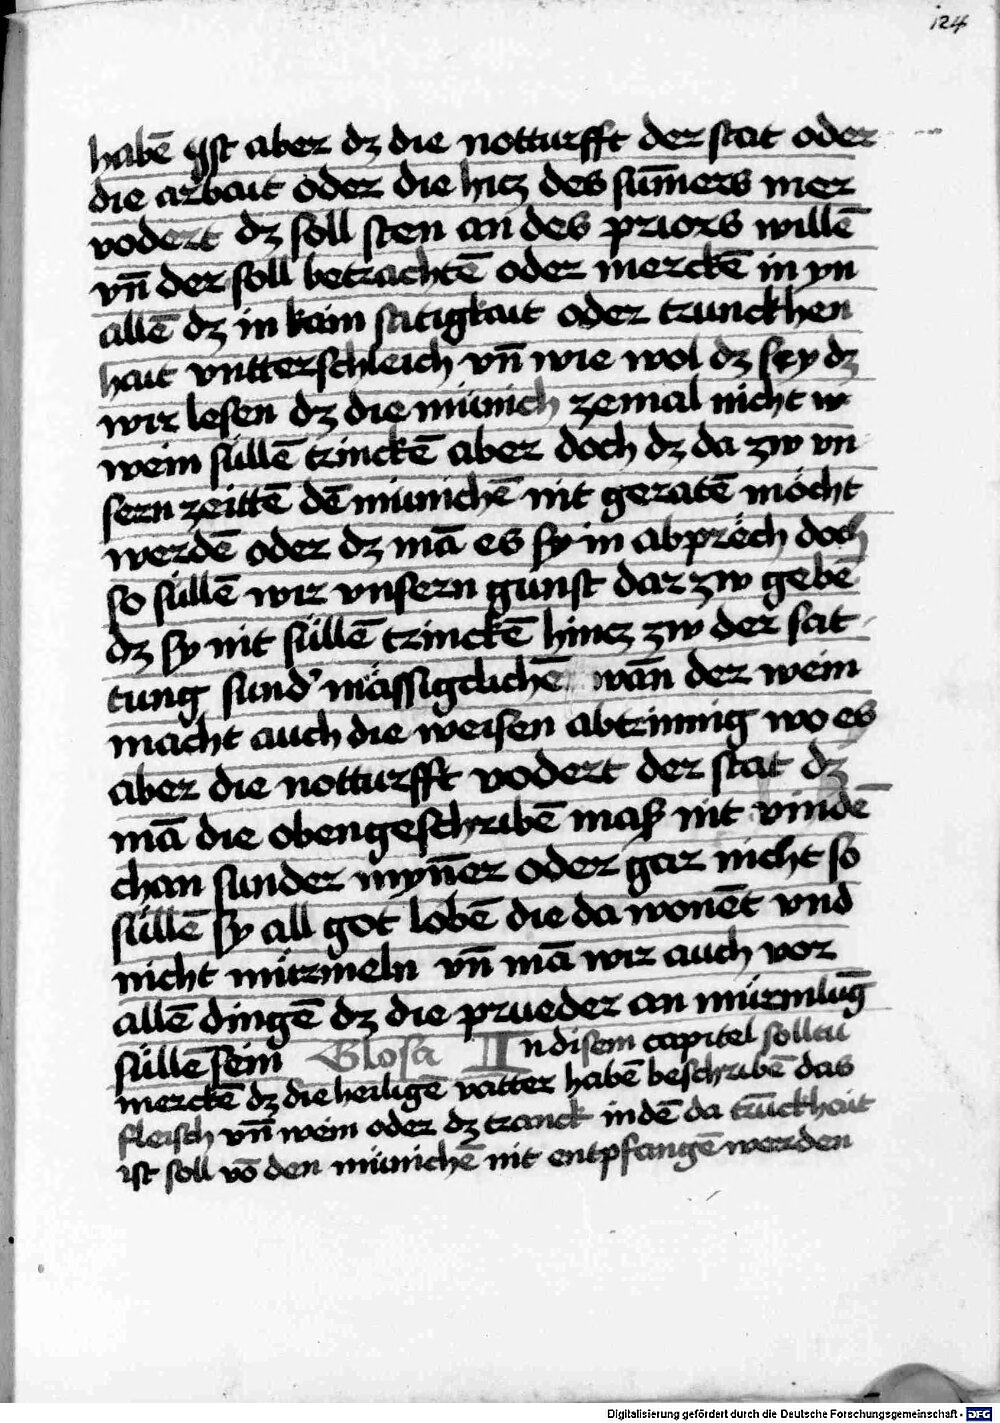 124
habē Jst aber dz die notturfft der stat oder
die arbait oder die hitz des sūmers mer
vodert dz soll sten an des priors willē
vn̄ der soll betrachtē oder merckē in yn
allē dz in kain satigkait oder trunckhen
hait vntterschleich vn̄ wie wol dz sey dz
wir lesen dz die münich zemal nicht w
wein süllē trinckē aber doch dz da zw vn
sern zeittē dē münichē nit geratē möcht
werdē oder dz mā es sy in abprëch doch
so süllē wir vnsern gunst dar zw gebē
dz sy nit süllē trinckē hincz zw der sat
tung sund' mässigclichē wān der wein
macht auch die weisen abtrinnig wo es
aber die notturfft vodert der stat dz
mā die obengeschribē mass nit vindē
chan sunder myn̄er oder gar nicht so
süllē sy all got lobē die da wonēt vnd
nicht mürmeln vn̄ mā wir auch vor
allē dingē dz die prueder an mürmlūg
süllē sein Glosa In disem capitel solltu
merckē dz die heiligē vätter habē beschribē das
fleisch vn̄ wein oder dz tranck in dē da trūckhait
ist soll vō den münichē nit entpfangē werden
Digitalisierung gefördert durch die Deutsche Forschungsgemeinschaft - DFG